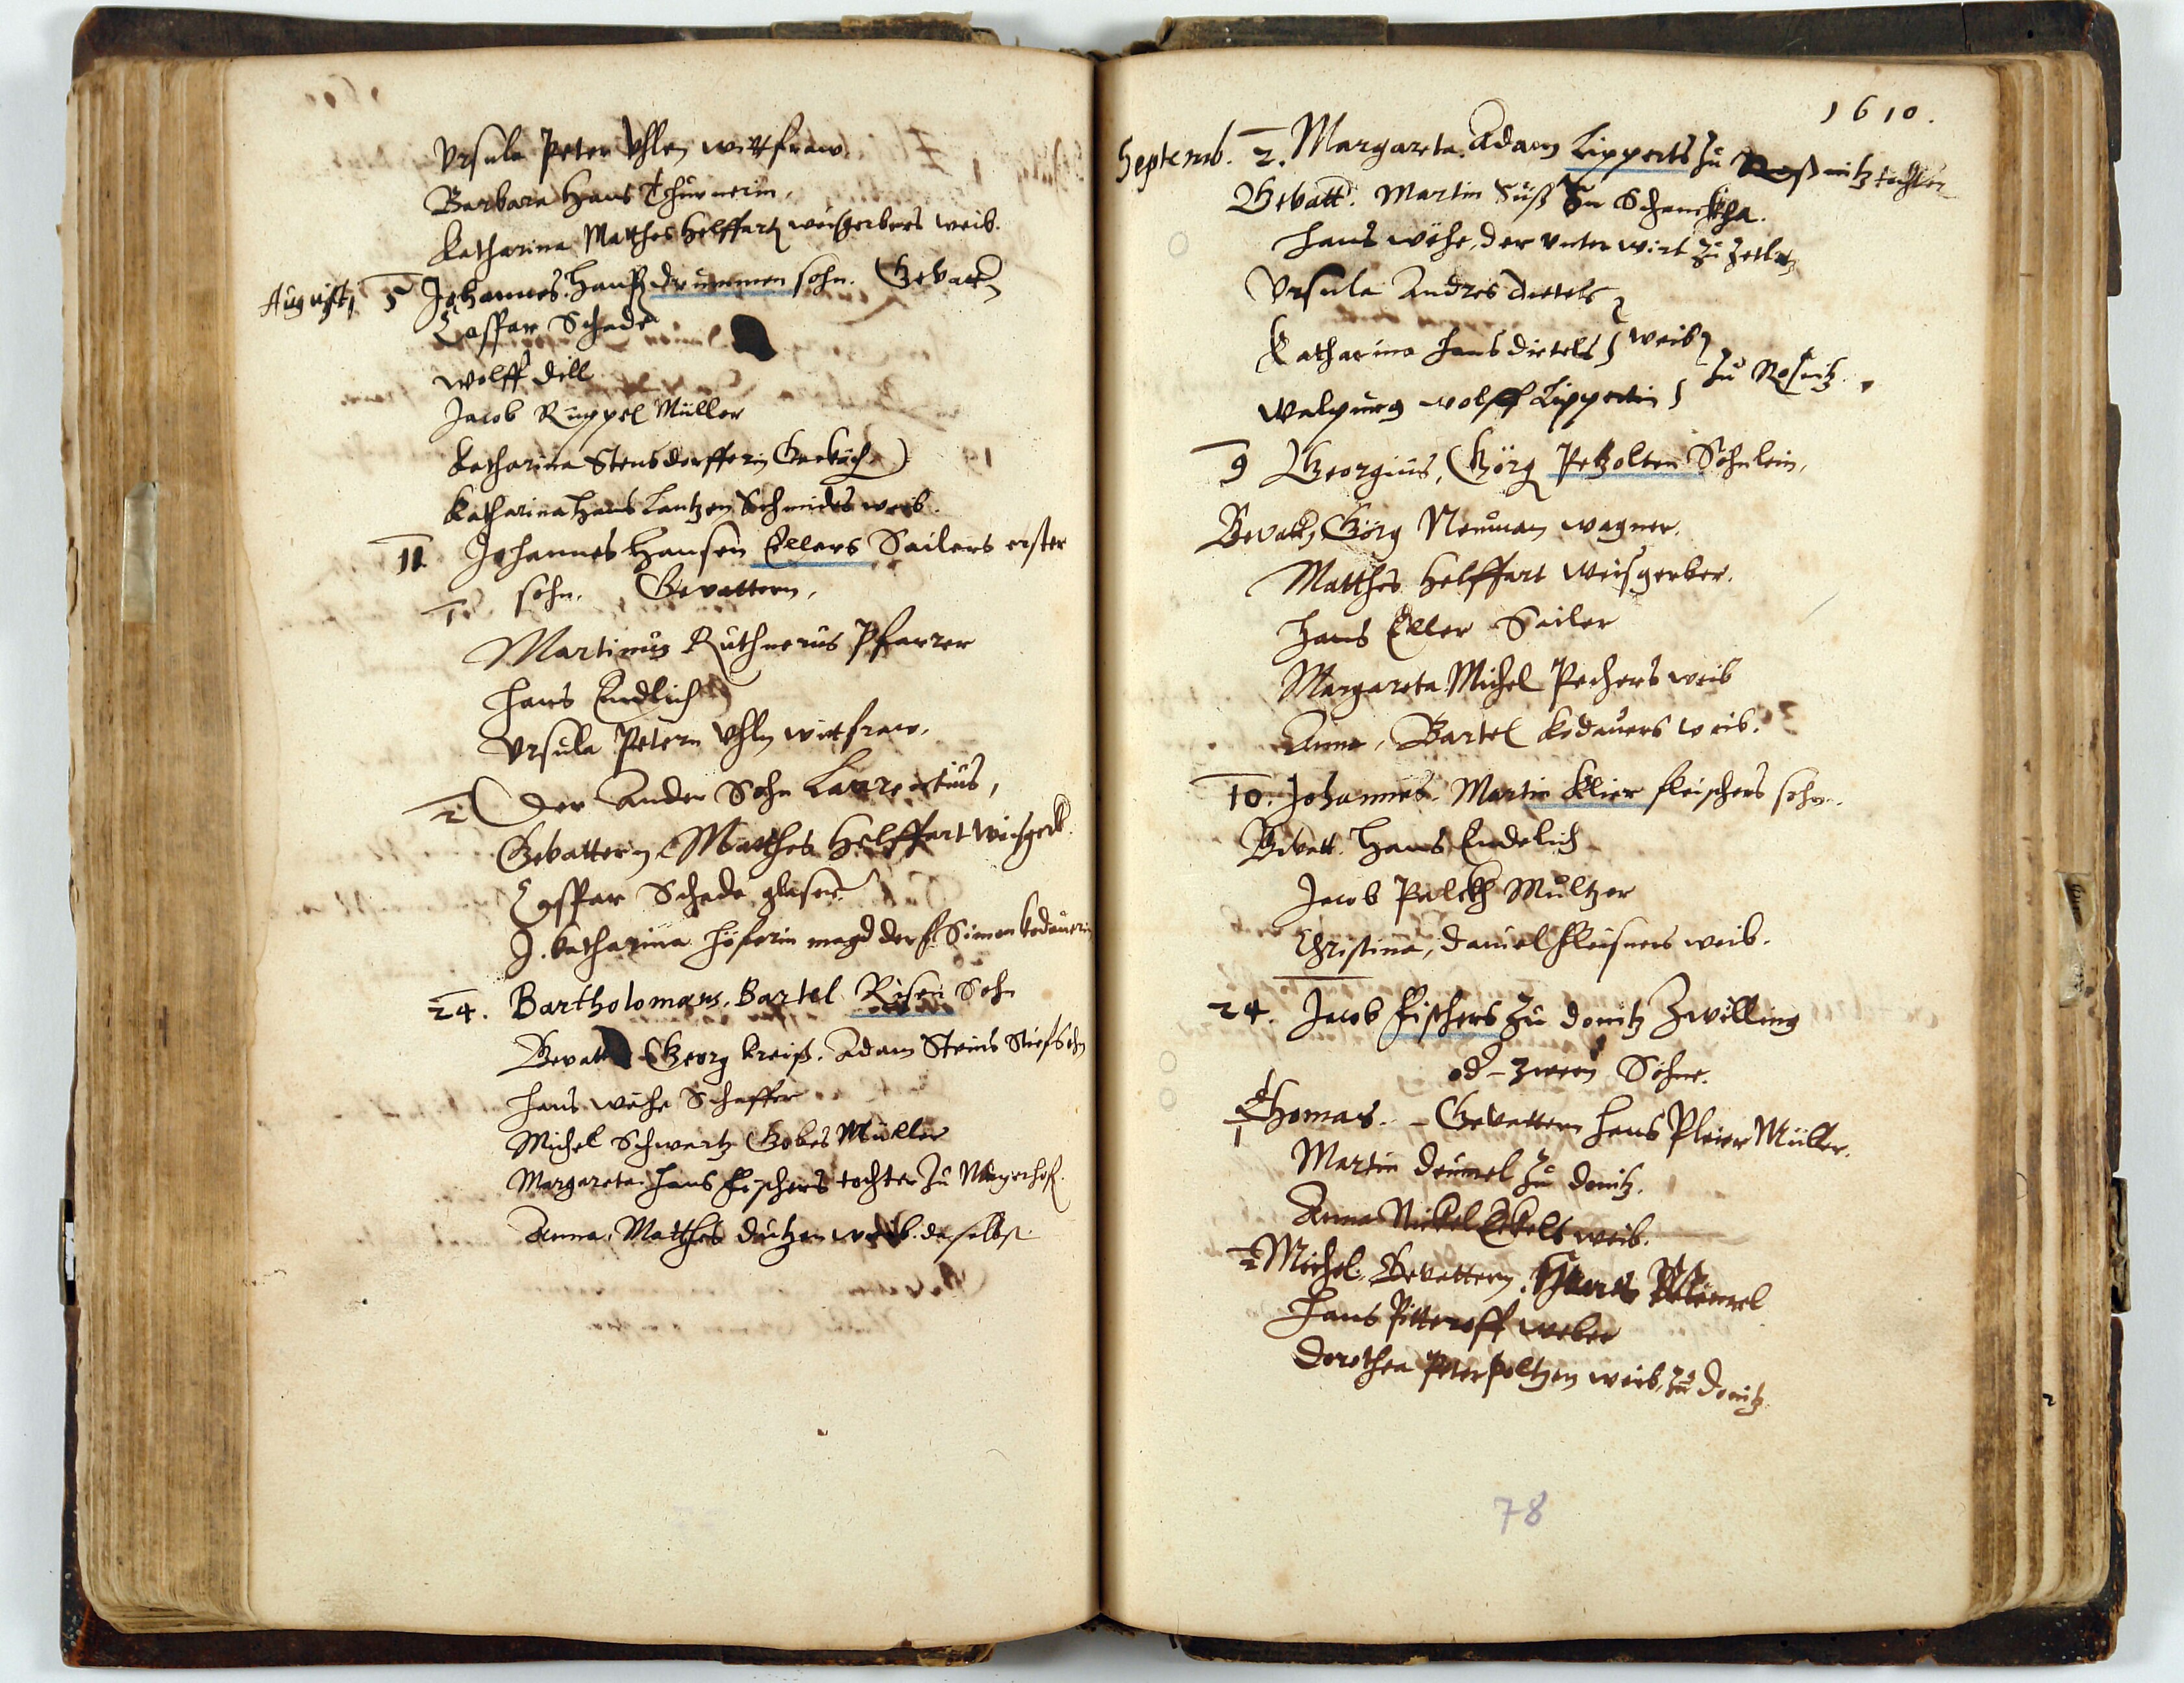 Ursula Peter Uhlen wittfraw.
Barbara Hans Thürnerin.
Katharina Matthes Helffart weisgerbers weib.
Augusti 5 Johannes. Hansen sohn. Gevatt.
Casspar Schade
Wolff Dill
Jacob Ruppel Müller
Katharina Stensdorfferin
Katharina Hans Lantzen Schmides weib.
11 Johannes Hansen Ellers Sailers erster
1. sohn. Gevattern,
Martinus Ruthnerus Pfarrer
Hans Endlich
Ursula Petern Uhln witfraw.
2 Der Ander Sohn Laurentius,
Gevattern Matthes Helffart Weisgerb.
Casspar Schade glaser
J. Katharina Höferin magd der f. Simon Kodauerin
24. Bartholomaeus. Bartel Risen Sohn
Gevatt Georg Kreiß. Adam Steins Stiefsohn
Hans Wehe Schaffer
Michel Schwartz Müller
Margareta Hans Fischers tochter zu Mayerhof.
Anna, Matthes weib. daselbst
1610.
Septemb. 2. Margareta. Adam Lipperts zu Roßnitz tochter
Gevatt. Martin Süß zu
Hans Wehe, der unter wirt zu Zetlitz
Ursula Andres Dietels
Katharina Hans Dietels weib
Walpurg Wolff Lippertin zu Rosnitz.
9 Georgius, Görg Petzolten Söhnlein,
Gevatt. Görg Neuman wagner.
Matthes Helffart Weisgerber.
Hans Eller Sailer
Margareta Michel Pechers weib
Anna, Bartel Kodauers weib.
10. Johannes. Martin Klier fleischers sohn.
Gevatt. Hans Endelich
Jacob Multzer
Christina, Daniel Fleisners weib.
24. Jacob Fischers zu Donitz Zwilling
od zween Söhne.
1 Thomas. Gevattern Hans Pleier Müller.
Martin Deumel zu Donitz.
Anna Nickel Eckels weib.
2 Michel. Gevattern.
Hans Pitteroff weber
Dorothea Peter Poltzen weib, zu Donitz
78